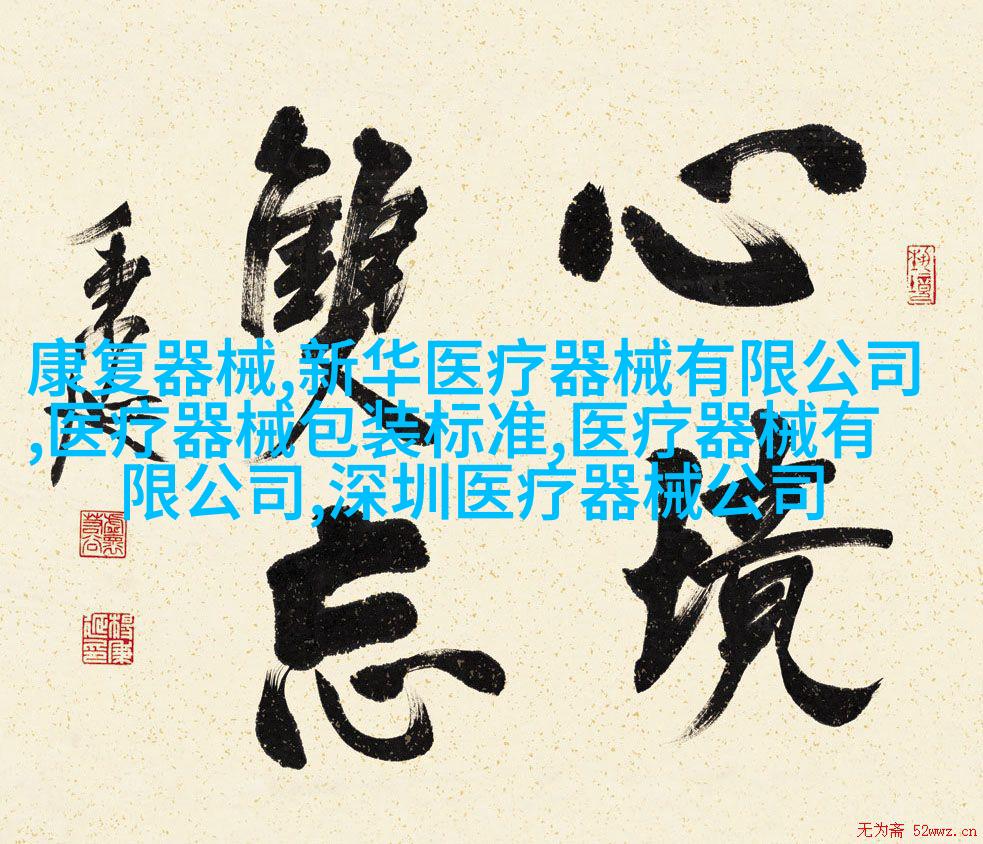 心境
雙忘
康复器械,新华医疗器械有限公司
,医疗器械包装标准,医疗器械有
限公司,深圳医疗器械公司
无为斋 52wwz.cn